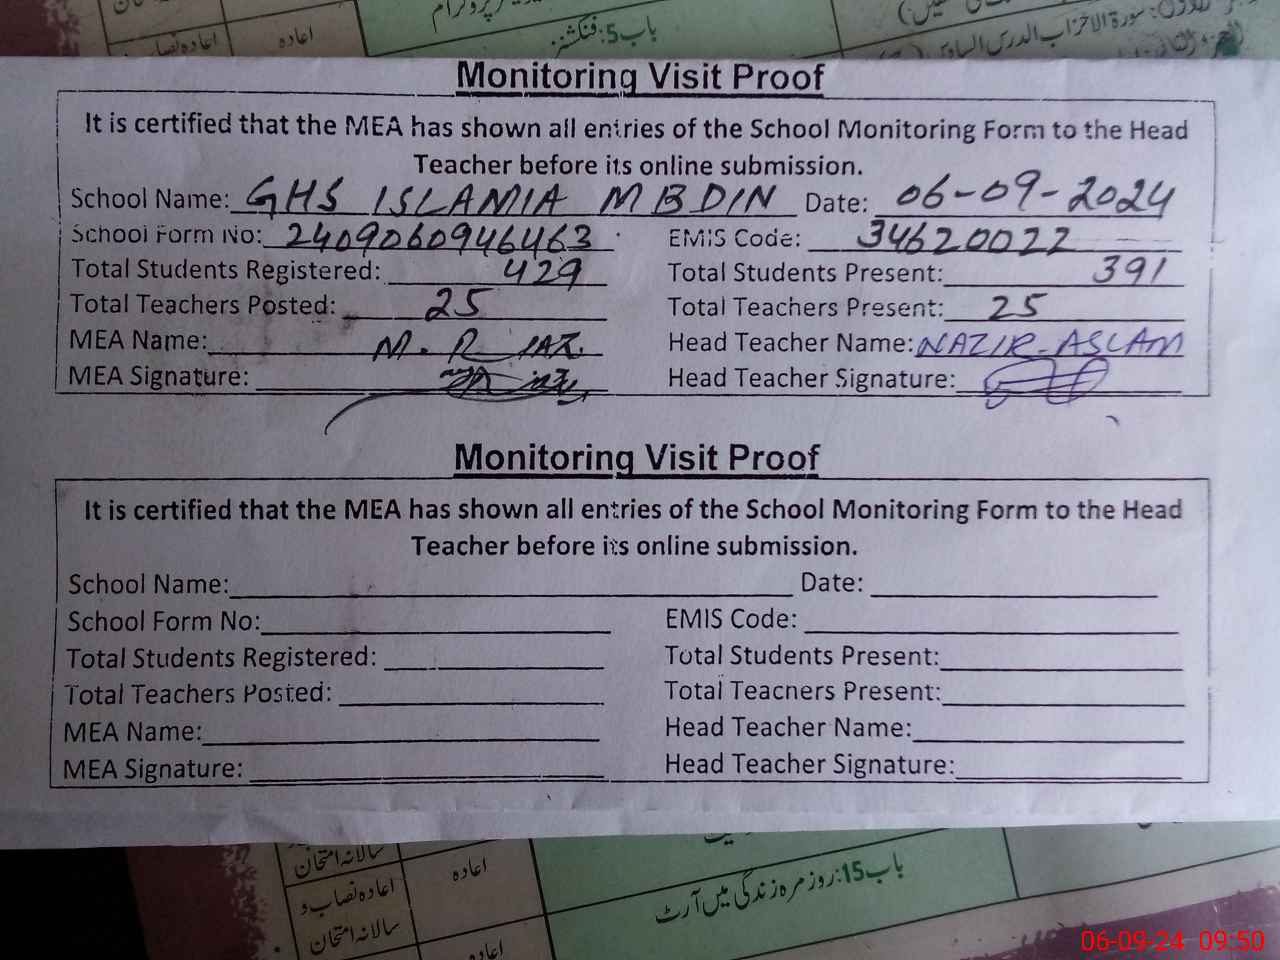 باب5:فنکشنز
اعادہ
Monitoring Visit Proof
It is certified that the MEA has shown all entries of the School Monitoring Form to the Head
Teacher before its online submission.
School Name: GHS ISLAMIA MBDIN Date: 06-09-2024
School Form No: 2409060946463 EMIS Code: 34620022
Total Students Registered: 429 Total Students Present: 391
Total Teachers Posted: 25 Total Teachers Present: 25
MEA Name: M. RIAZ Head Teacher Name: NAZIR-ASLAM
MEA Signature: Head Teacher Signature:
Monitoring Visit Proof
It is certified that the MEA has shown all entries of the School Monitoring Form to the Head
Teacher before its online submission.
School Name: Date:
School Form No: EMIS Code:
Total Students Registered: Total Students Present:
Total Teachers Posted: Total Teachers Present:
MEA Name: Head Teacher Name:
MEA Signature: Head Teacher Signature:
سالانہ امتحان
اعادہ
باب15:روزمرہ زندگی میں آرٹ
اعادہ نصاب و
سالانہ امتحان
اعادہ
06-09-24 09:50